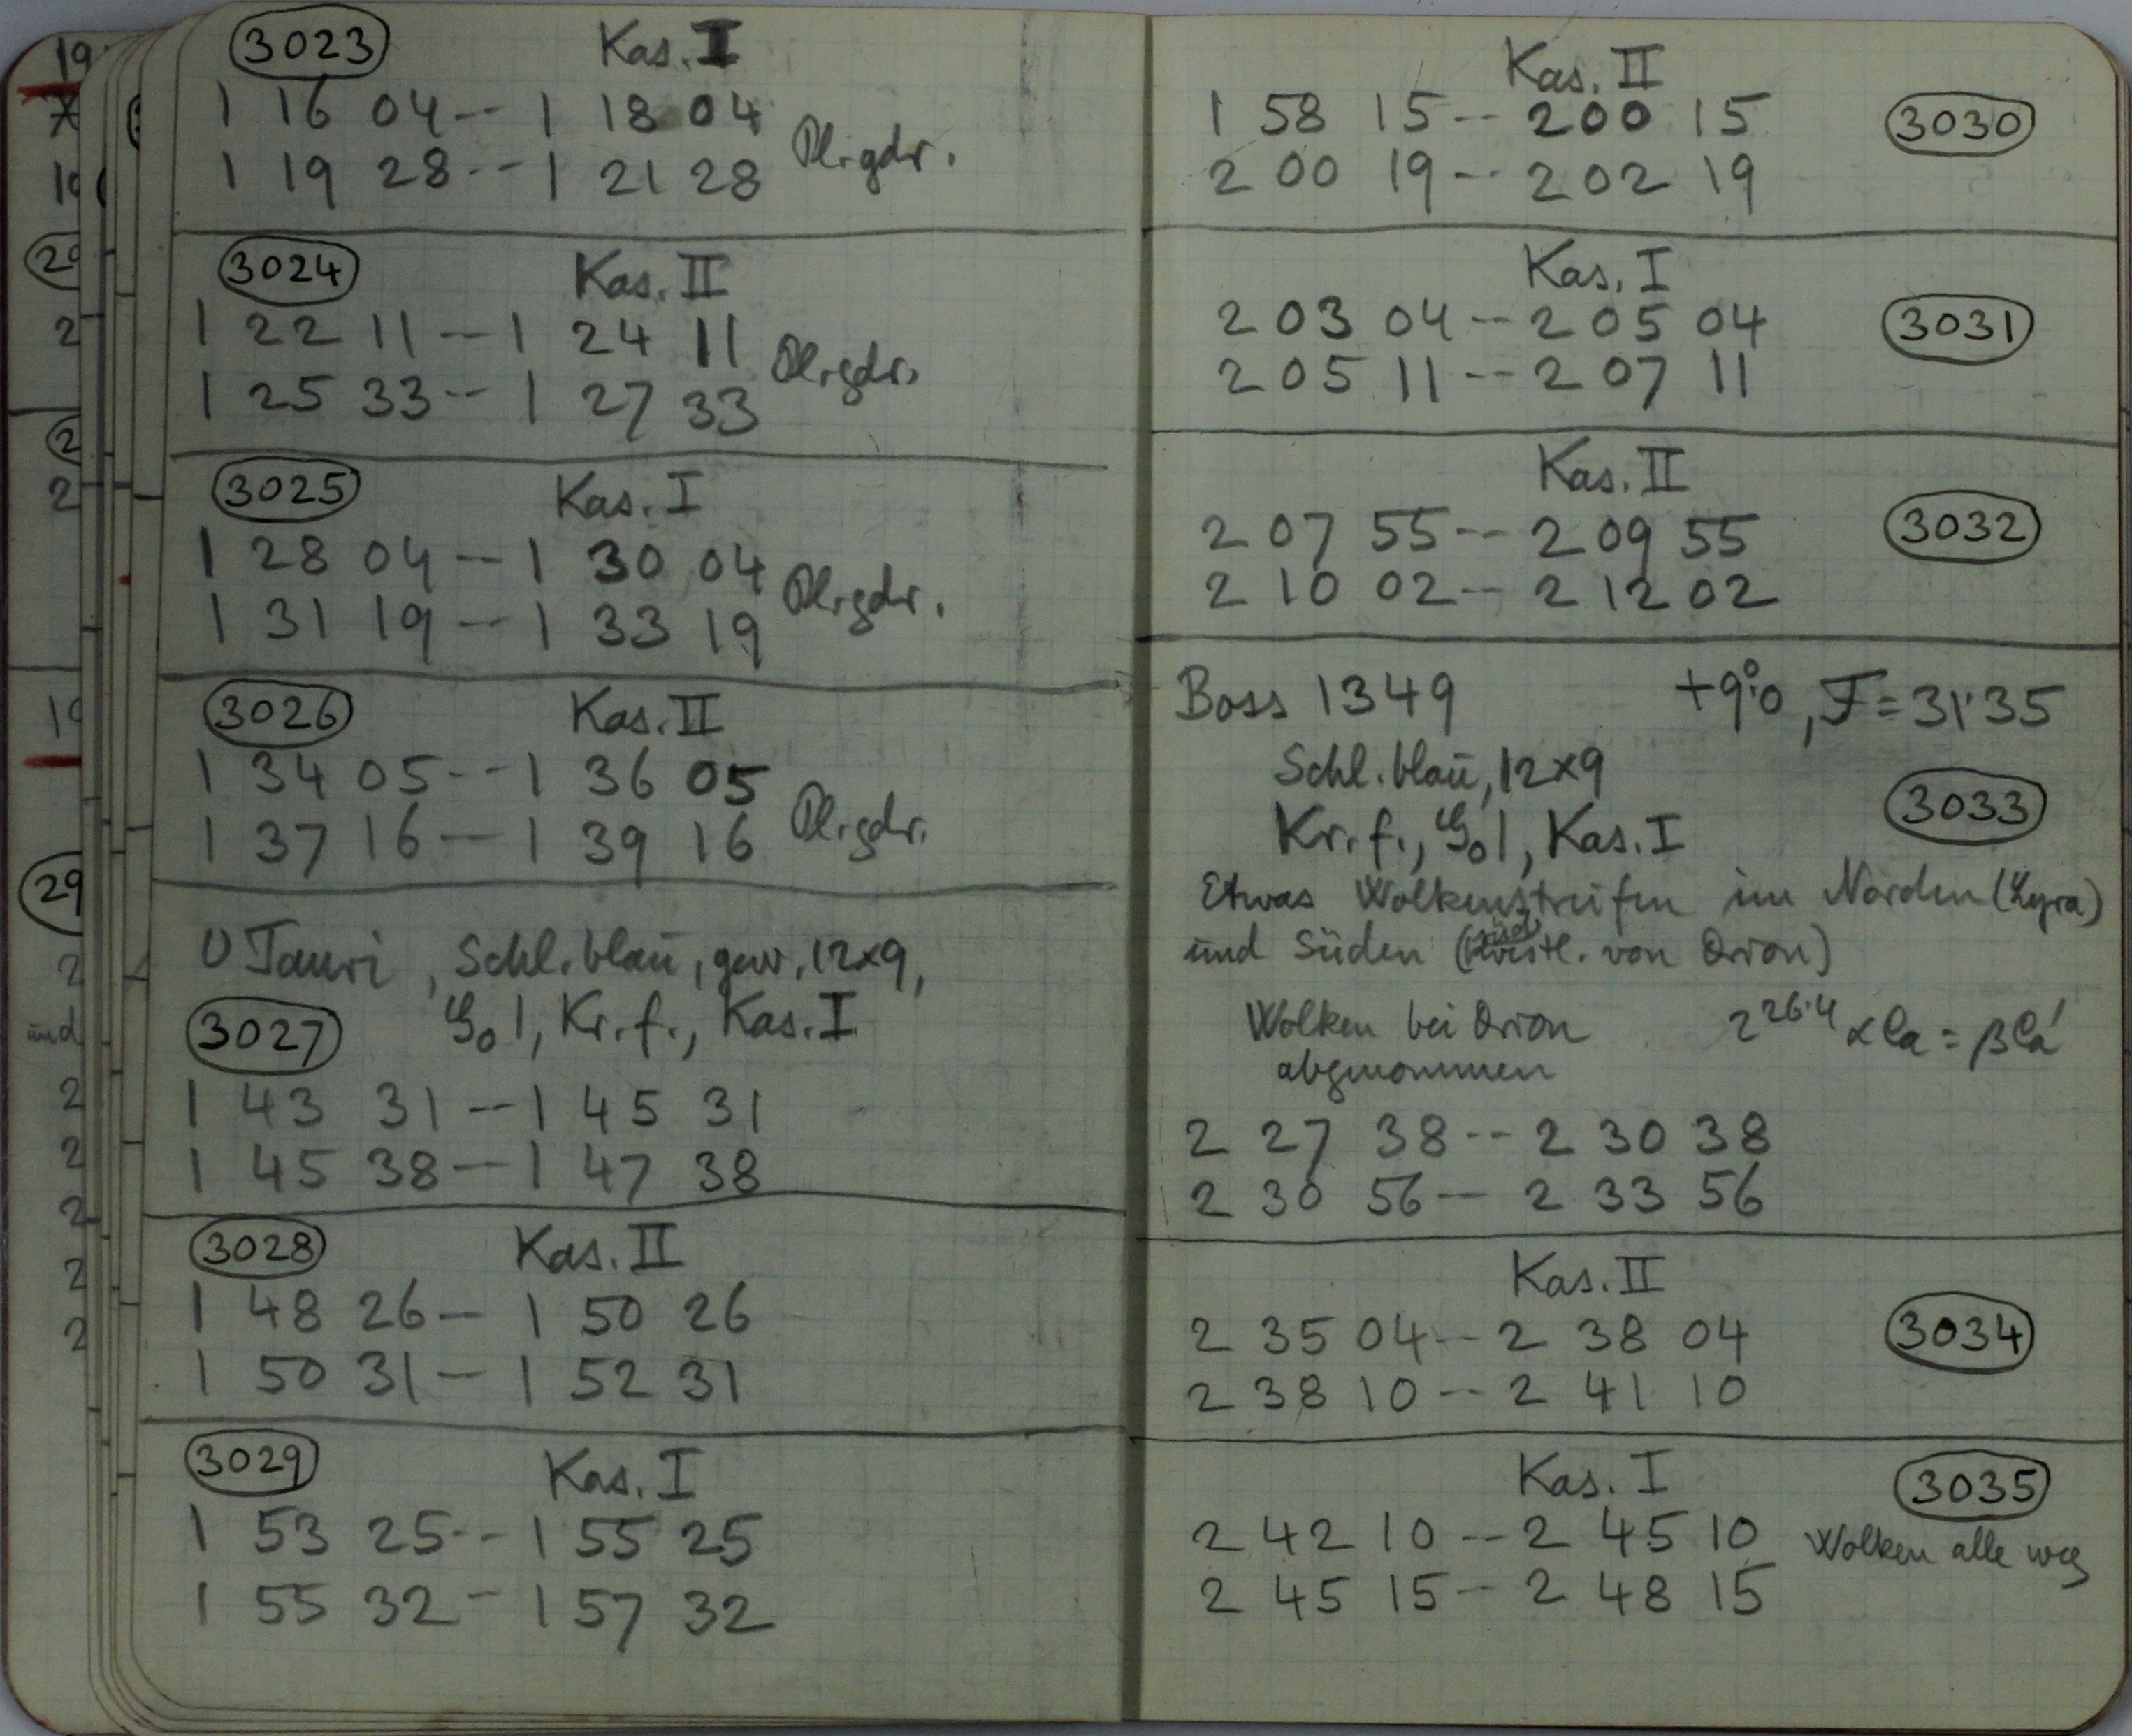 3023 Kas. I
1 16 04 -- 1 18 04
1 19 28 -- 1 21 28 Pl. gdr.
3024 Kas. II
1 22 11 -- 1 24 11
1 25 33 -- 1 27 33 Pl. gdr.
3025 Kas. I
1 28 04 -- 1 30 04
1 31 19 -- 1 33 19 Pl. gdr.
3026 Kas. II
1 34 05 -- 1 36 05
1 37 16 -- 1 39 16 Pl. gdr.
Tauri, Schl. blau, gew. 12x9,
3027 1, Kr. f., Kas. I
1 43 31 -- 1 45 31
1 45 38 -- 1 47 38
3028 Kas. II
1 48 26 -- 1 50 26
1 50 31 -- 1 52 31
3029 Kas. I
1 53 25 -- 1 55 25
1 55 32 -- 1 57 32
Kas. II
1 58 15 -- 2 00 15 3030
2 00 19 -- 2 02 19
Kas. I
2 03 04 -- 2 05 04 3031
2 05 11 -- 2 07 11
Kas. II
2 07 55 -- 2 09 55 3032
2 10 02 -- 2 12 02
Boss 1349 +9°.0, F = 31.35
Schl. blau, 12x9
3033
Kr. f., 1, Kas. I
Etwas Wolkenstreifen im Norden (Lyra)
und Süden (südwestl. von Orion)
Wolken bei Orion 2 26.4 α Ca = β Ca'
abgenommen
2 27 38 -- 2 30 38
2 30 56 -- 2 33 56
Kas. II
2 35 04 -- 2 38 04 3034
2 38 10 -- 2 41 10
Kas. I 3035
2 42 10 -- 2 45 10 Wolken alle weg
2 45 15 -- 2 48 15